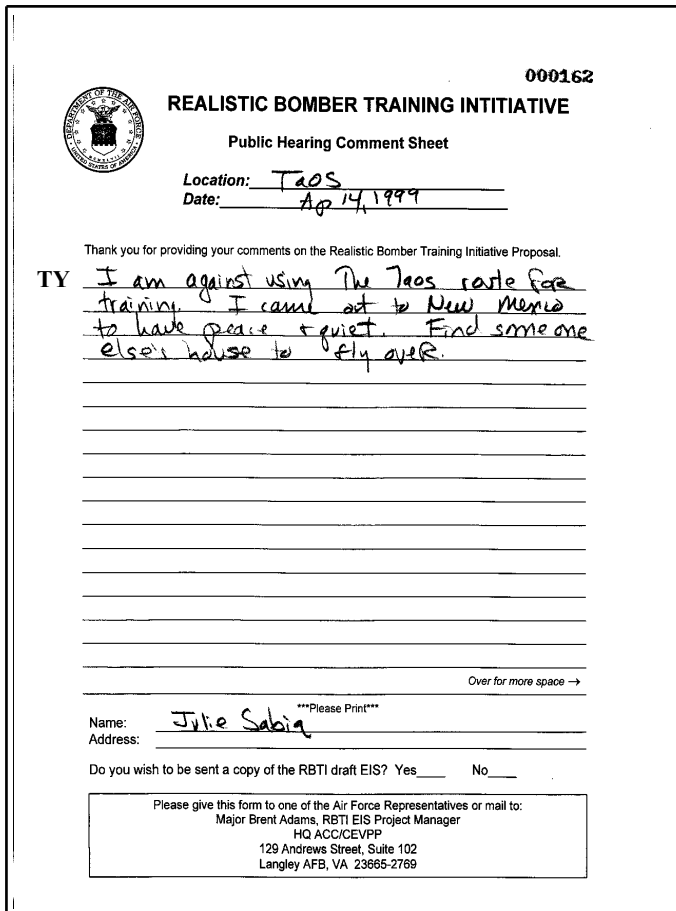 000162
DEPARTMENT OF THE AIR FORCE
UNITED STATES OF AMERICA
REALISTIC BOMBER TRAINING INTITIATIVE
Public Hearing Comment Sheet
Location: Taos
Date: Ap 14, 1999
Thank you for providing your comments on the Realistic Bomber Training Initiative Proposal.
TY I am against using The Taos route for
training. I came out to New Mexico
to have peace + quiet. Find someone
else's house to fly over.
Over for more space →
***Please Print***
Name: Julie Sabia
Address:
Do you wish to be sent a copy of the RBTI draft EIS? Yes____ No____
Please give this form to one of the Air Force Representatives or mail to:
Major Brent Adams, RBTI EIS Project Manager
HQ ACC/CEVPP
129 Andrews Street, Suite 102
Langley AFB, VA 23665-2769